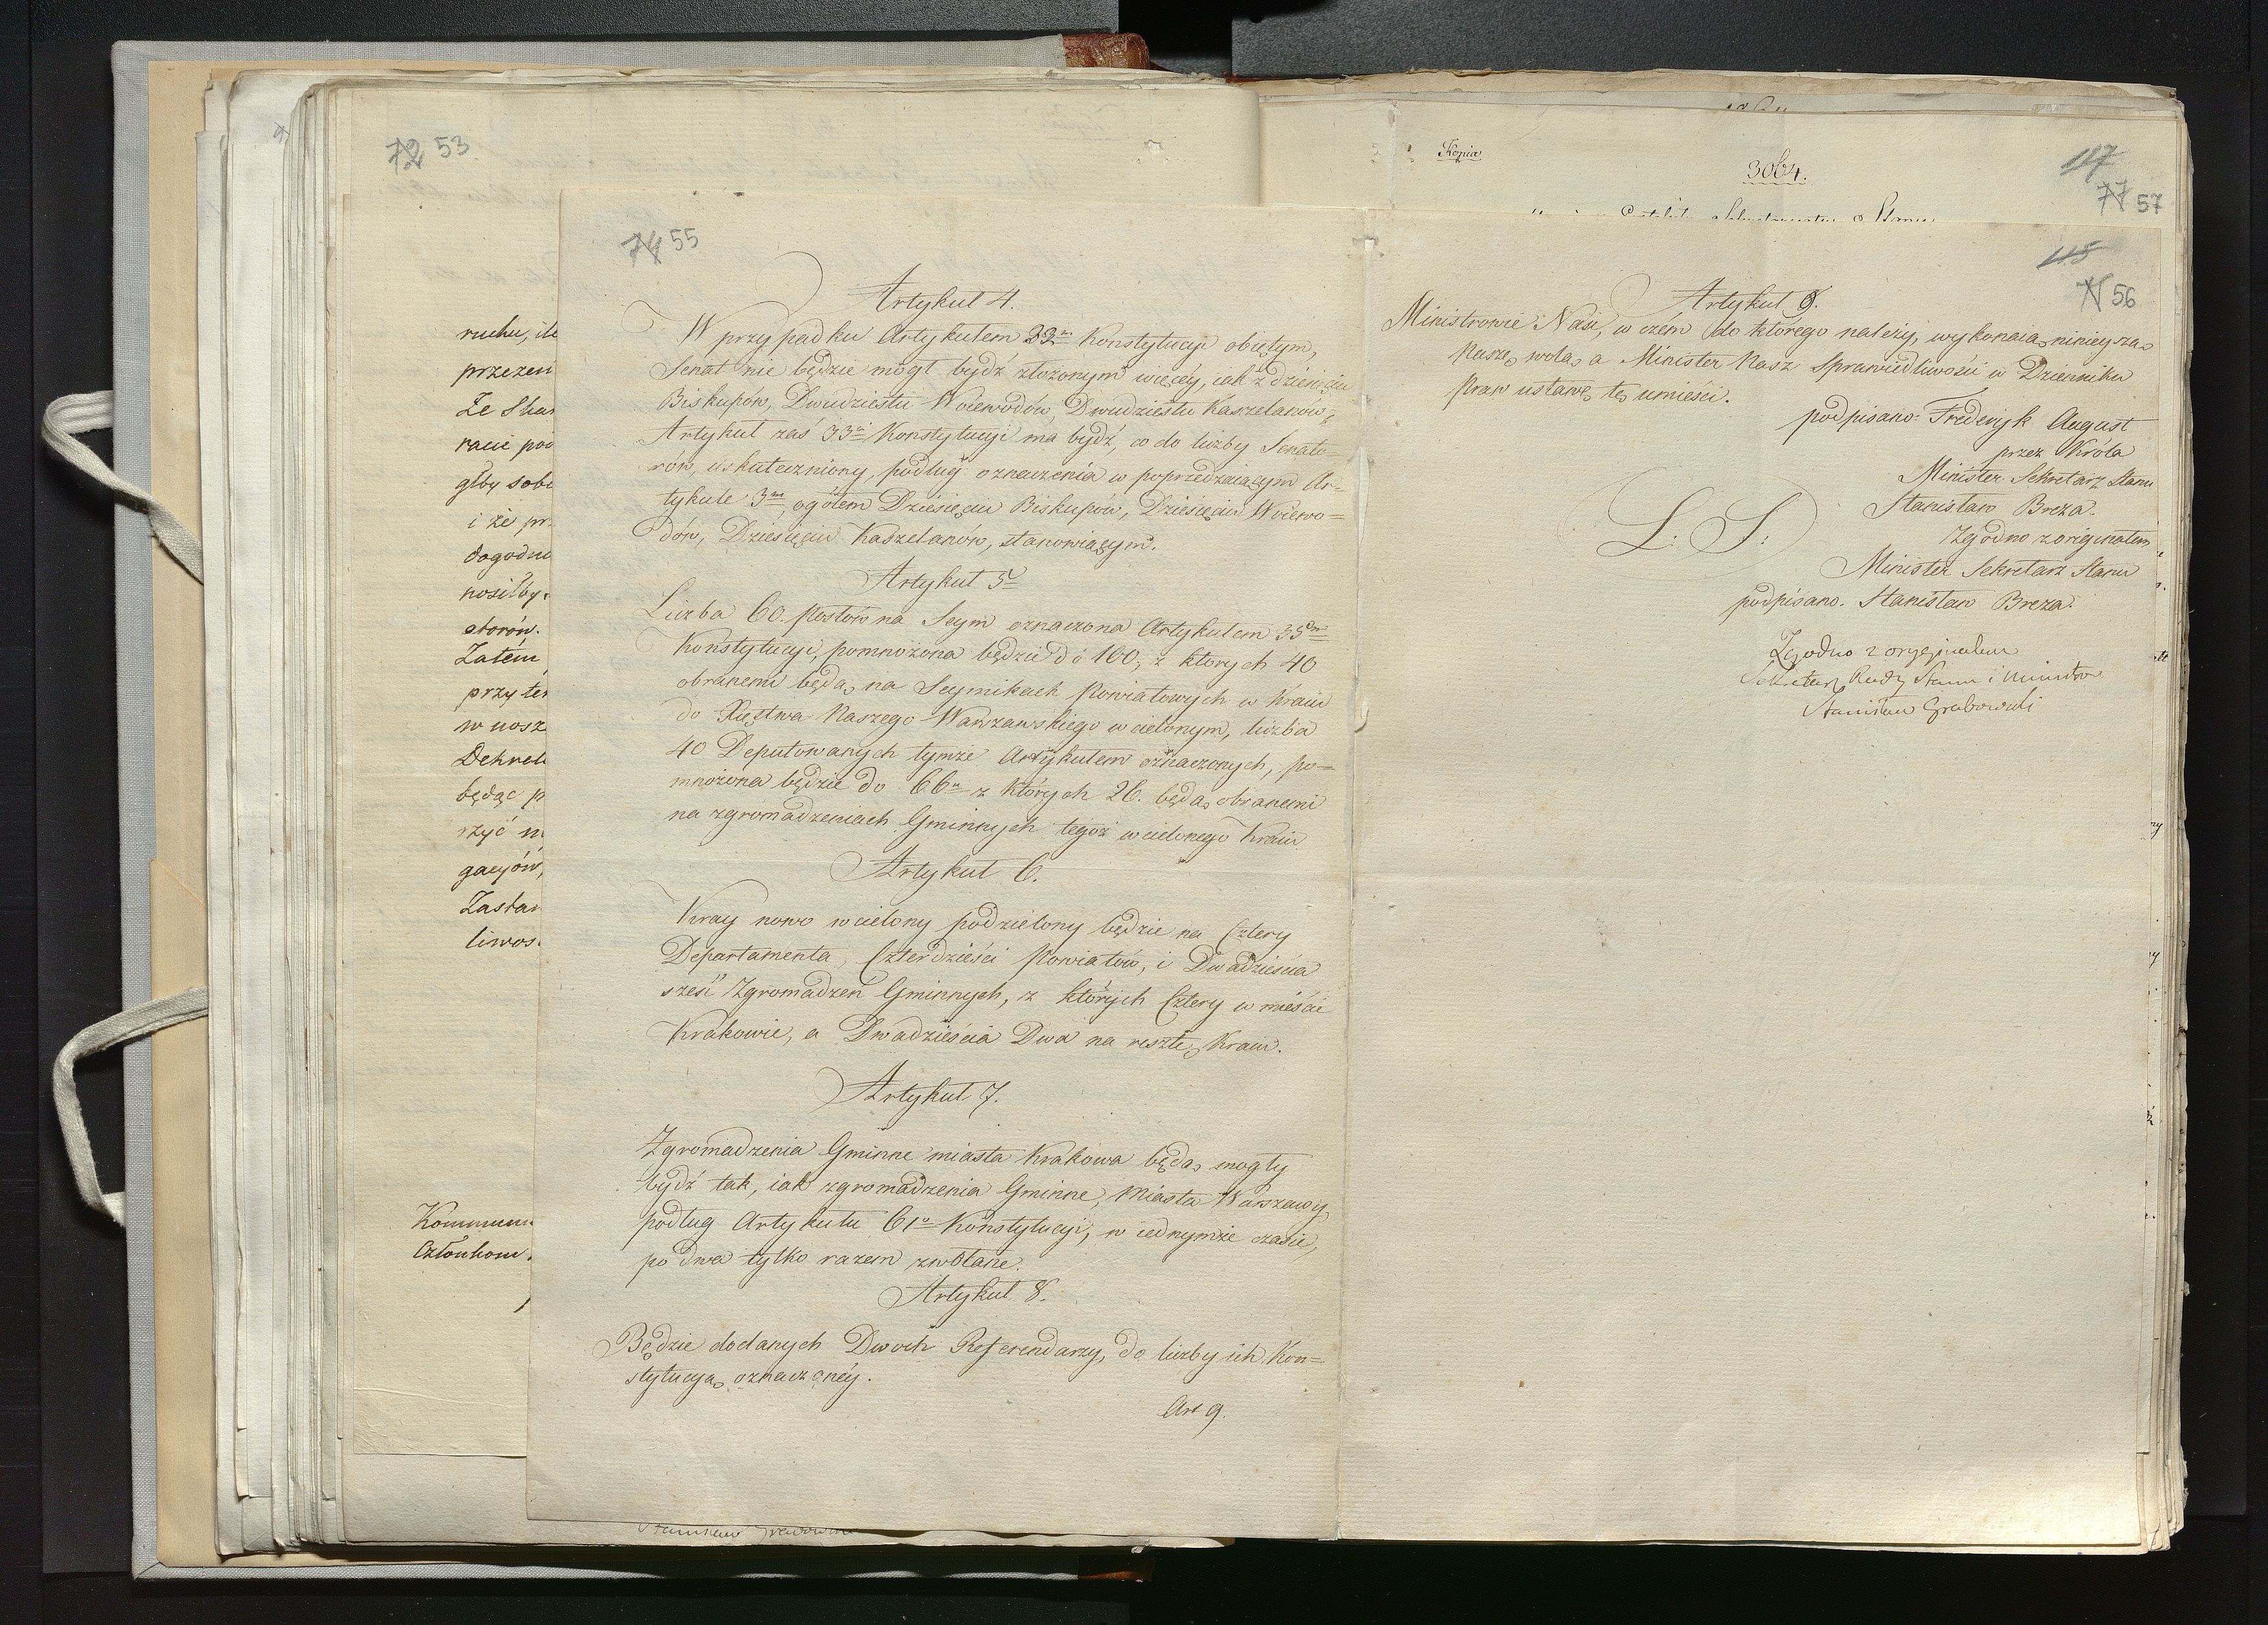 72 53
ruchu, ile
przezen
Ze Skar
racie poi
głby sobi
i że pr
dogodn
nosiłby
storów.
Zatém
przy tér
w nosz
Dekret
będąc p
rzyć n
gacyów,
Zastan
liwos
Kommun
Człönkom
74 55
Artykuł 4.
W przypadku Artykułem 32m Konstytucyi obiętym,
Senat nie będzie mógł bydź złożonym więcéy, iak z dziesięciu
Biskupów, Dwudziestu Woiewodów, Dwudziestu Kasztelanów,
Artykuł zaś 33ci Konstytucyi ma bydź, co do liczby Senato=
rów, uskuteczniony, podług oznaczenia w poprzedzaiącym Ar=
tykule 3m, ogółem Dziesięciu Biskupów, Dziesięciu Woiewo=
dów, Dziesięciu Kasztelanów, stanowiącym.
Artykuł 5ty
Liczba 60. Posłów na Seym oznaczona Artykułem 35m
Konstytucyi, pomnożona będzie do 100, z ktorych 40
obranemi będą na Seymikach Powiatowych w Kraiu
do Xięstwa Naszego Warszawskiego wcielonym, liczba
40 Deputowanych tymże Artykułem oznaczonych, po=
mnożona będzie do 66u z których 26. będą obranemi
na zgromadzeniach Gminnych tegoż wcielonego Kraiu
Artykuł 6.
Kray nowo wcielony podzielony będzie na Cztery
Departamenta, Czterdzieści Powiatów, i Dwadzieścia
sześć Zgromadzeń Gminnych, z których Cztery w mieście
Krakowie, a Dwadzieścia Dwa na resztę Kraiu.
Artykuł 7.
Zgromadzenia Gminne miasta Krakowa będą mogły
bydź tak, iak zgromadzenia Gminne, Miasta Warszawy,
podług Artykułu 61o Konstytucyi, w iednymże czasie,
po dwa tylko razem zwołane.
Artykuł 8.
Będzie dodanych Dwoch Referendarzy, do liczby ich Kon=
stytucyą oznaczonéy.
Art 9.
Kopia
3064.
117
77 57
115
56
Artykuł 9.
Ministrowie Nasi, w czém do którego należy, wykonaią ninieyszą
Naszą wolą, a Minister Nasz Sprawiedliwości w Dzienniku
Praw ustawę tę umieści.
podpisano: Frederyk August
przez Króla
Minister Sekretarz Stanu
Stanisław Breza.
L: S:
Zgodno z originałem
Minister Sekretarz Stanu
podpisano. Stanisław Breza.
Zgodno z oryginałem
Sekretarz Rady Stanu i Ministrów
Stanisław Grabowski